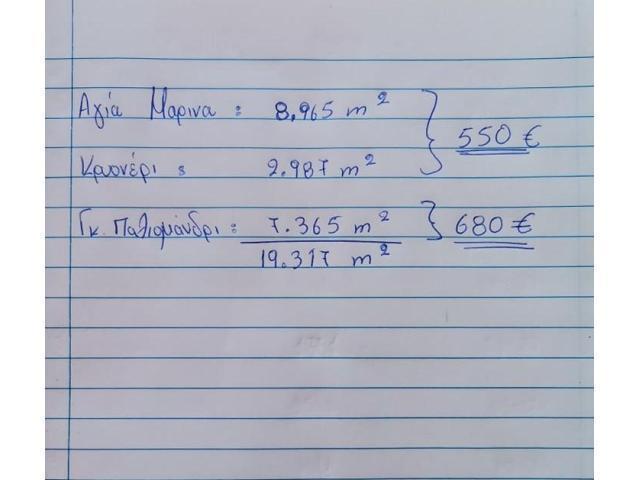 Αγία Μαρινα : 8,965 m²
550 €
Κρυονέρι : 2.987 m²
Γκ. Παλιομάνδρι : 7.365 m² 680 €
19.317 m²